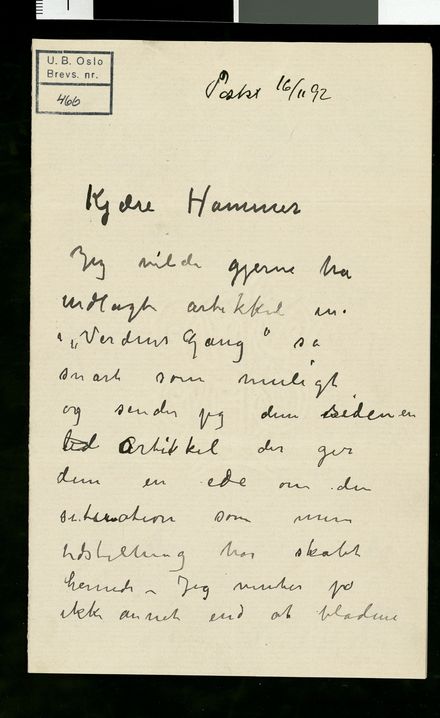 U. B. Oslo
Brevs. nr.
466
16/11 92
Kjære Hammer
Jeg vilde gjerne ha
indlagte artikkel in.
i „Verdens Gang“ så
snart som muligt
og sender jeg dem siden en
artikkel der ger
dem en ide om den
situation som min
udstilling har skabt
hernede – Jeg venter jo
ikke annet end at bladene